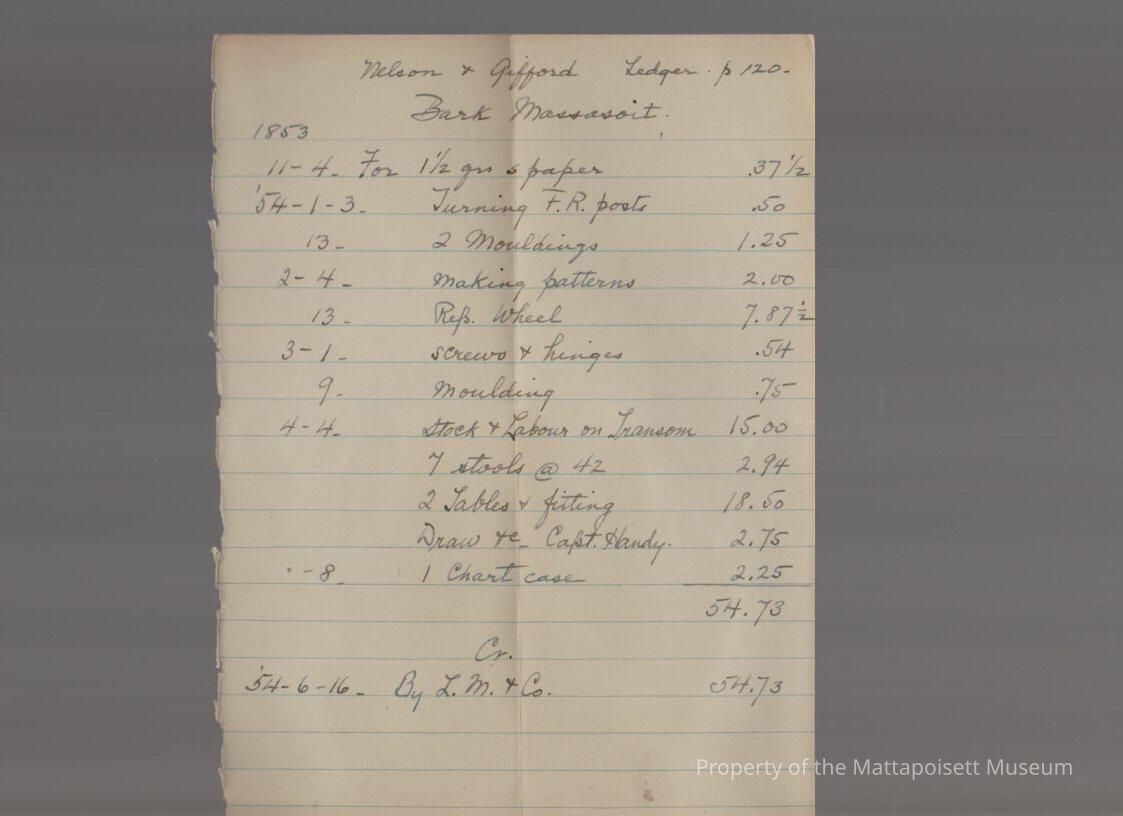 Nelson & Gifford Ledger. p 120-
Bark Massasoit.
1853
11-4- For 1 1/2 grs s paper .37 1/2
'54-1-3- Turning F.R. posts .50
13- 2 Mouldings 1.25
2-4- Making patterns 2.00
13- Rep. Wheel 7.87 1/2
3-1- screws & hinges .54
9- Moulding .75
4-4- Stock & Labour on Transom 15.00
7 stools @ 42 2.94
2 Tables & fitting 18.50
Draw &c- Capt. Handy. 2.75
" -8- 1 Chart case 2.25
54.73
Cr.
'54-6-16- By L. M. & Co. 54.73
Property of the Mattapoisett Museum